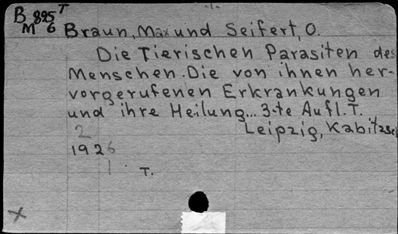 B 895 T
M 6
Braun, Max und Seifert, O.
Die Tierischen Parasiten des
Menschen. Die von ihnen her-
vorgerufenen Erkrankungen
und ihre Heilung... 3-te Aufl. T.
2
Leipzig, Kabitzsch
1926
1 T.